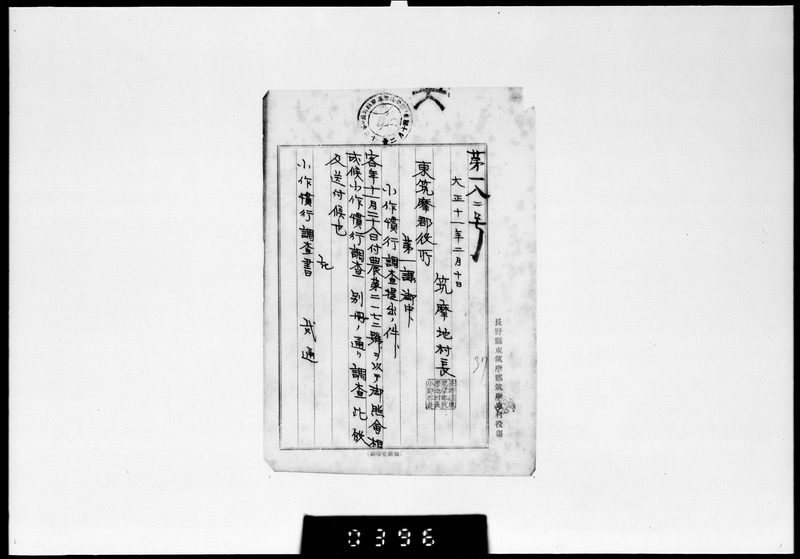 六
第一八二号
大正十一年二月十日
筑摩地村長
東筑摩郡役所
第一課御中
小作慣行調査提出ノ件
客年十一月二十八日付農第二一七二號ヲ以テ御照會相
成候小作慣行調査別冊ノ通リ調査比
及送付候也
左
小作慣行調査書 弐通
長野縣東筑摩郡筑摩地村役場
37
0396